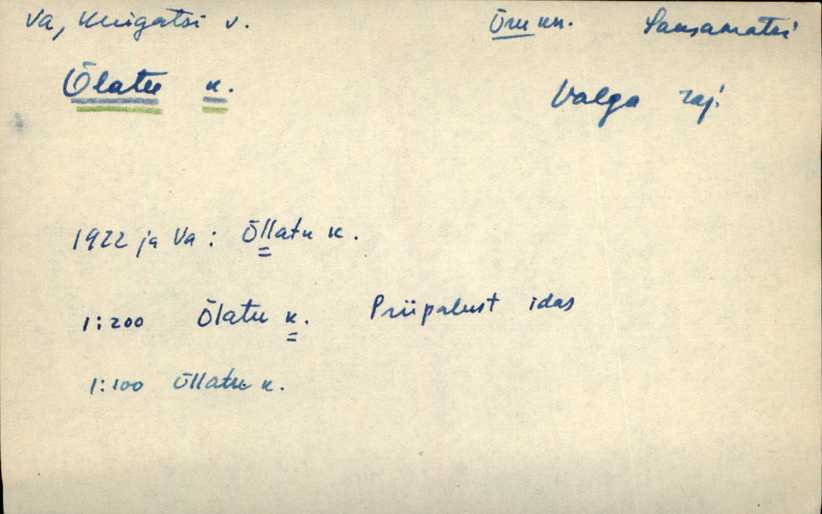 Va, Kuigatsi v. Õru kn. Sansamatsi
Õlatu k. Valga raj.
1922 ja Va: Õllatu k.
1:200 Õlatu k. Priipalust idas
1:100 Õllatu k.